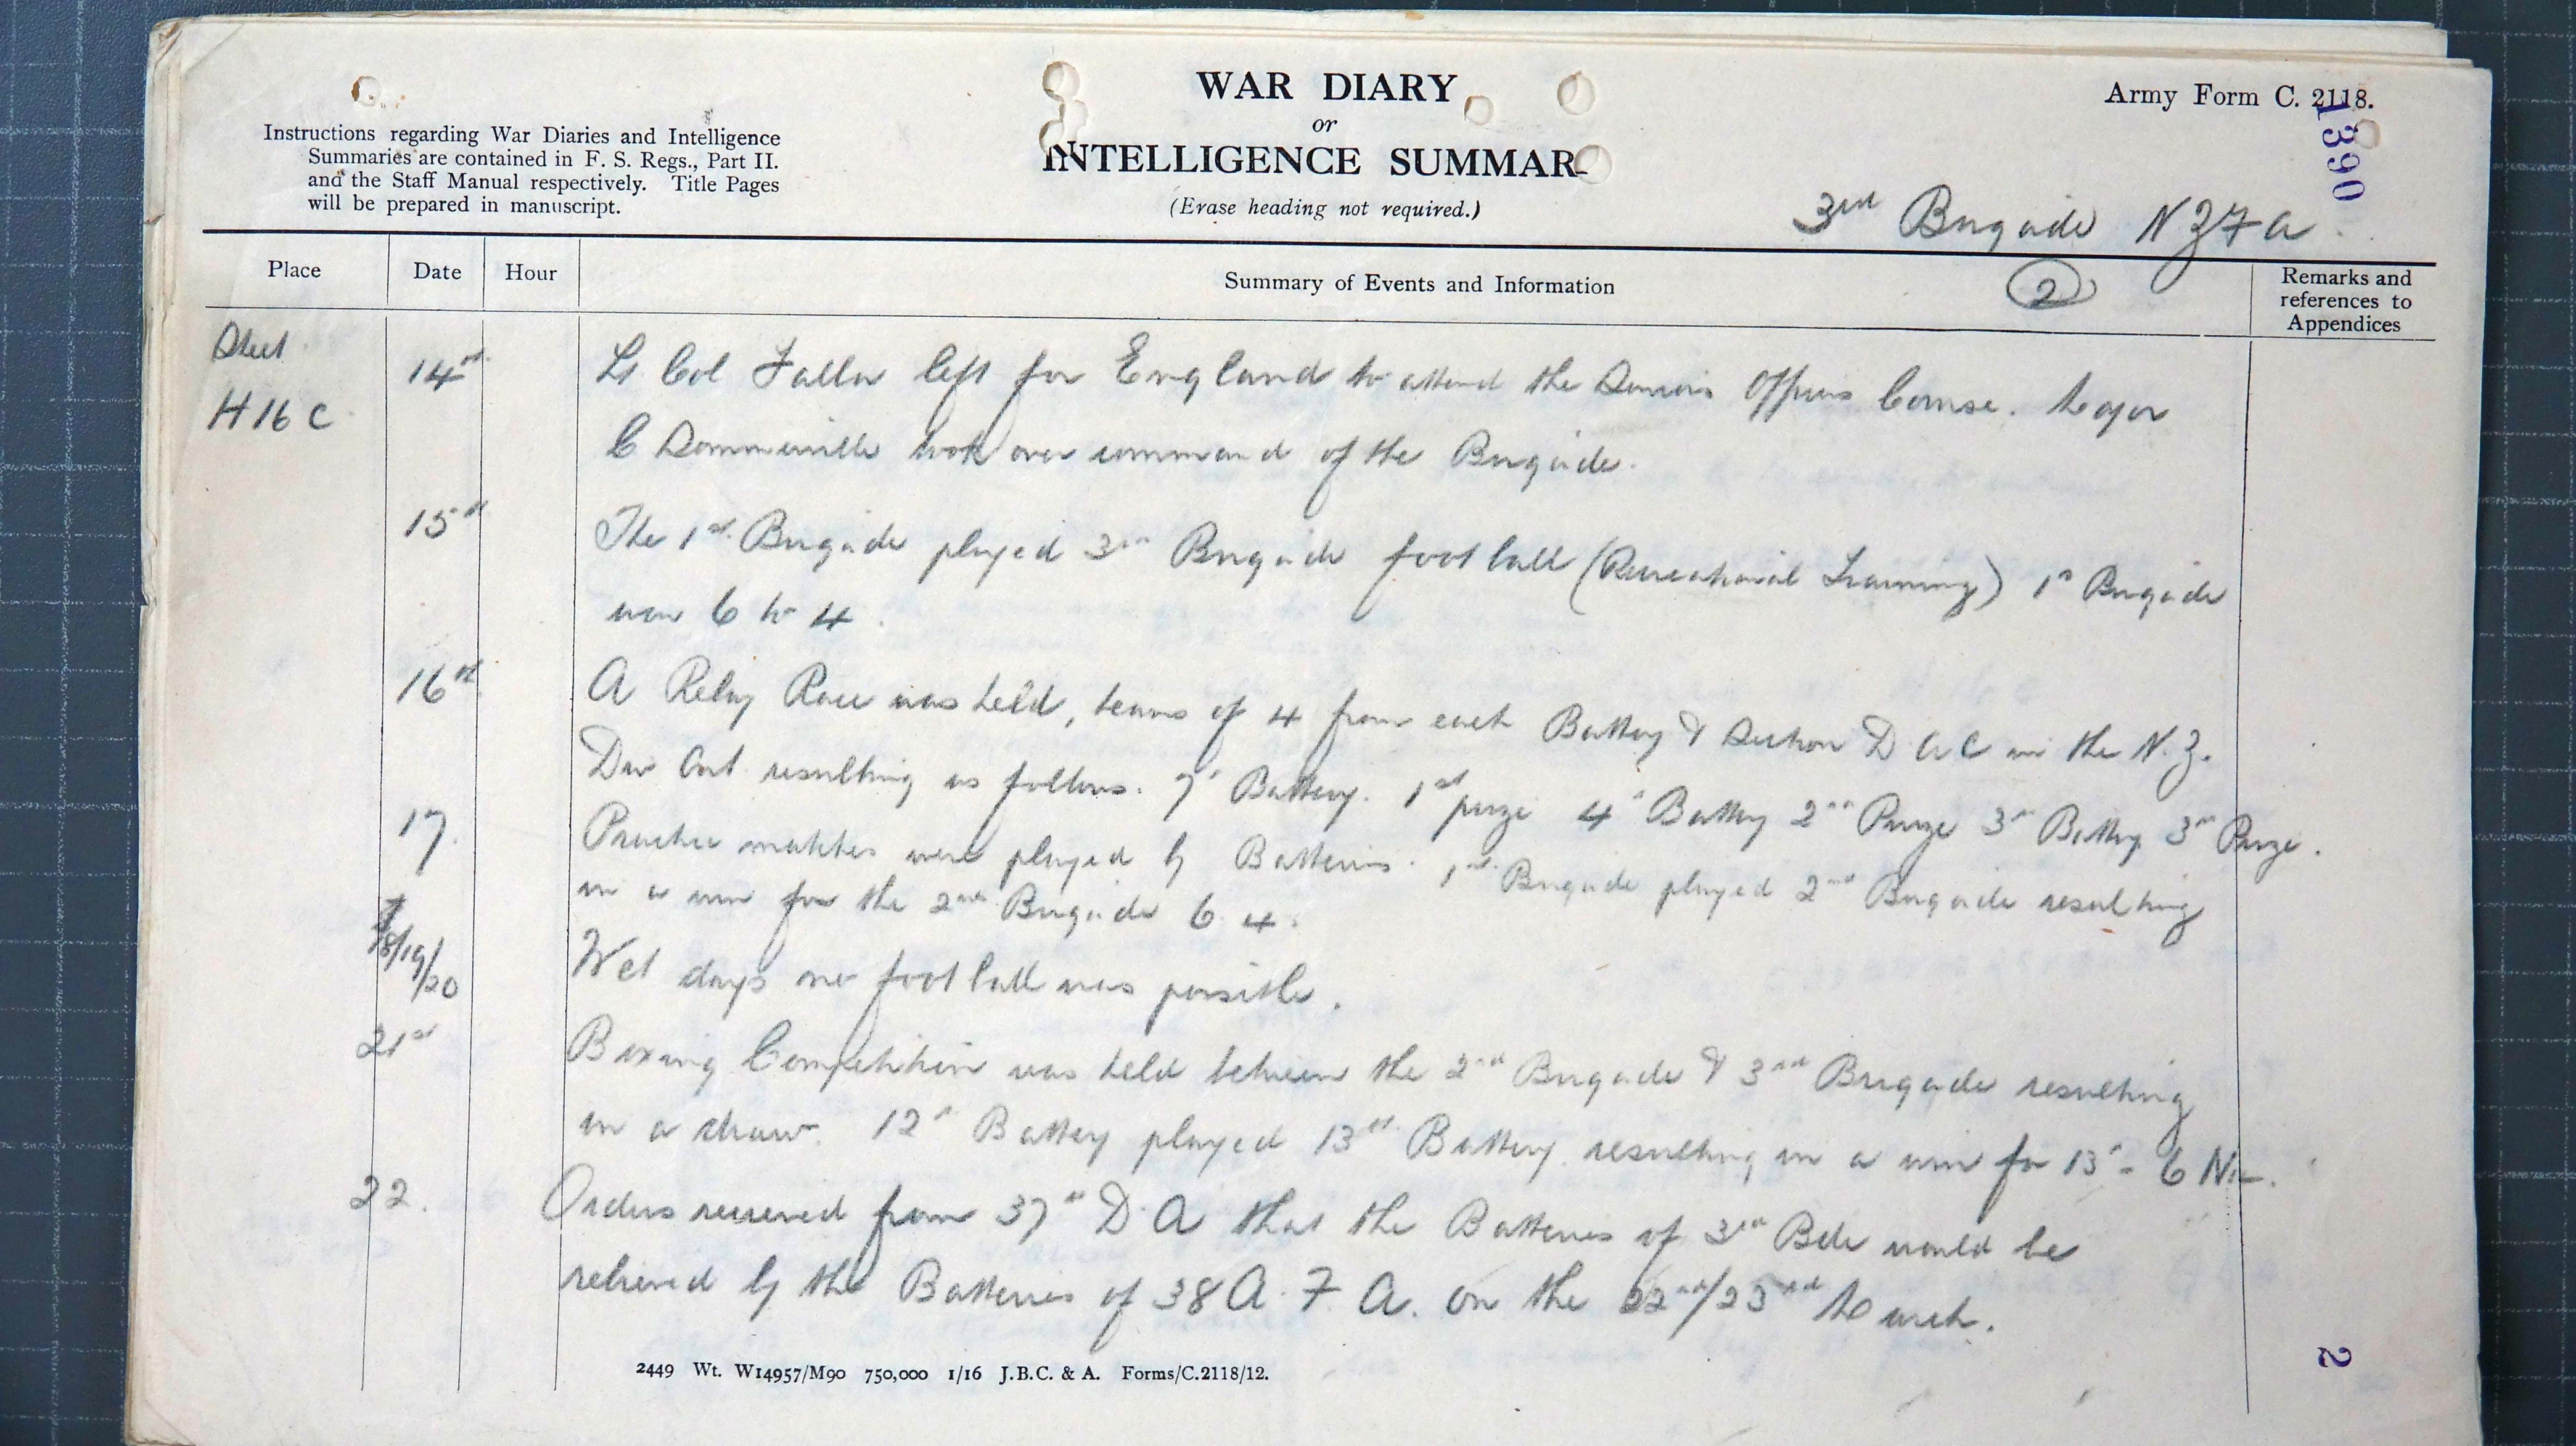 WAR DIARY
or
INTELLIGENCE SUMMAR
(Erase heading not required.)
Army Form C. 2118.
1390
Instructions regarding War Diaries and Intelligence
Summaries are contained in F. S. Regs., Part II.
and the Staff Manual respectively. Title Pages
will be prepared in manuscript.
3rd Brigade NZFA.
Place
Date
Hour
Summary of Events and Information
2
Remarks and
references to
Appendices
Sheet
H 16 C
14th
Lt Col Falla left for England to attend the Seniors Officers Course. Major
C Sommerville took over command of the Brigade.
15th
The 1st Brigade played 3rd Brigade football (Recreational Training) 1st Brigade
won 6 to 4.
16th
A Relay Race was held, teams of 4 from each Battery & Section D A C in the N.Z.
Div Art resulting as follows. 7th Battery. 1st prize 4th Battery 2nd Prize 3rd Battery 3rd Prize.
17.
Practice matches were played by Batteries. 1st Brigade played 2nd Brigade resulting
in a win for the 2nd Brigade 6 4.
18/19/20
Wet days no football was possible.
21st
Boxing Competition was held between the 2nd Brigade & 3rd Brigade resulting
in a draw. 12th Battery played 13th Battery resulting in a win for 13th - 6 Nil.
22.
Orders received from 37th D.A that the Batteries of 3rd Bde would be
relieved by the Batteries of 38 A. F. A. on the 22nd/23rd March.
2449 Wt. W14957/M90 750,000 1/16 J.B.C. & A. Forms/C.2118/12.
2